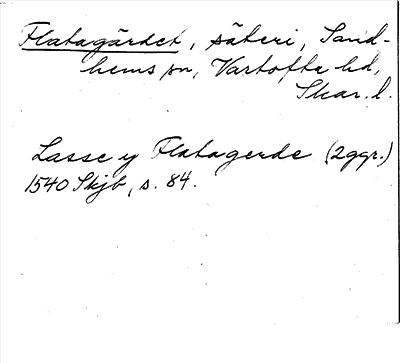 Flatagärdet, säteri, Sand-
hems sn, Vartofta hd,
Skar. l.
Lasse y Flatagerde (2ggr.)
1540 Skjb, s. 84.